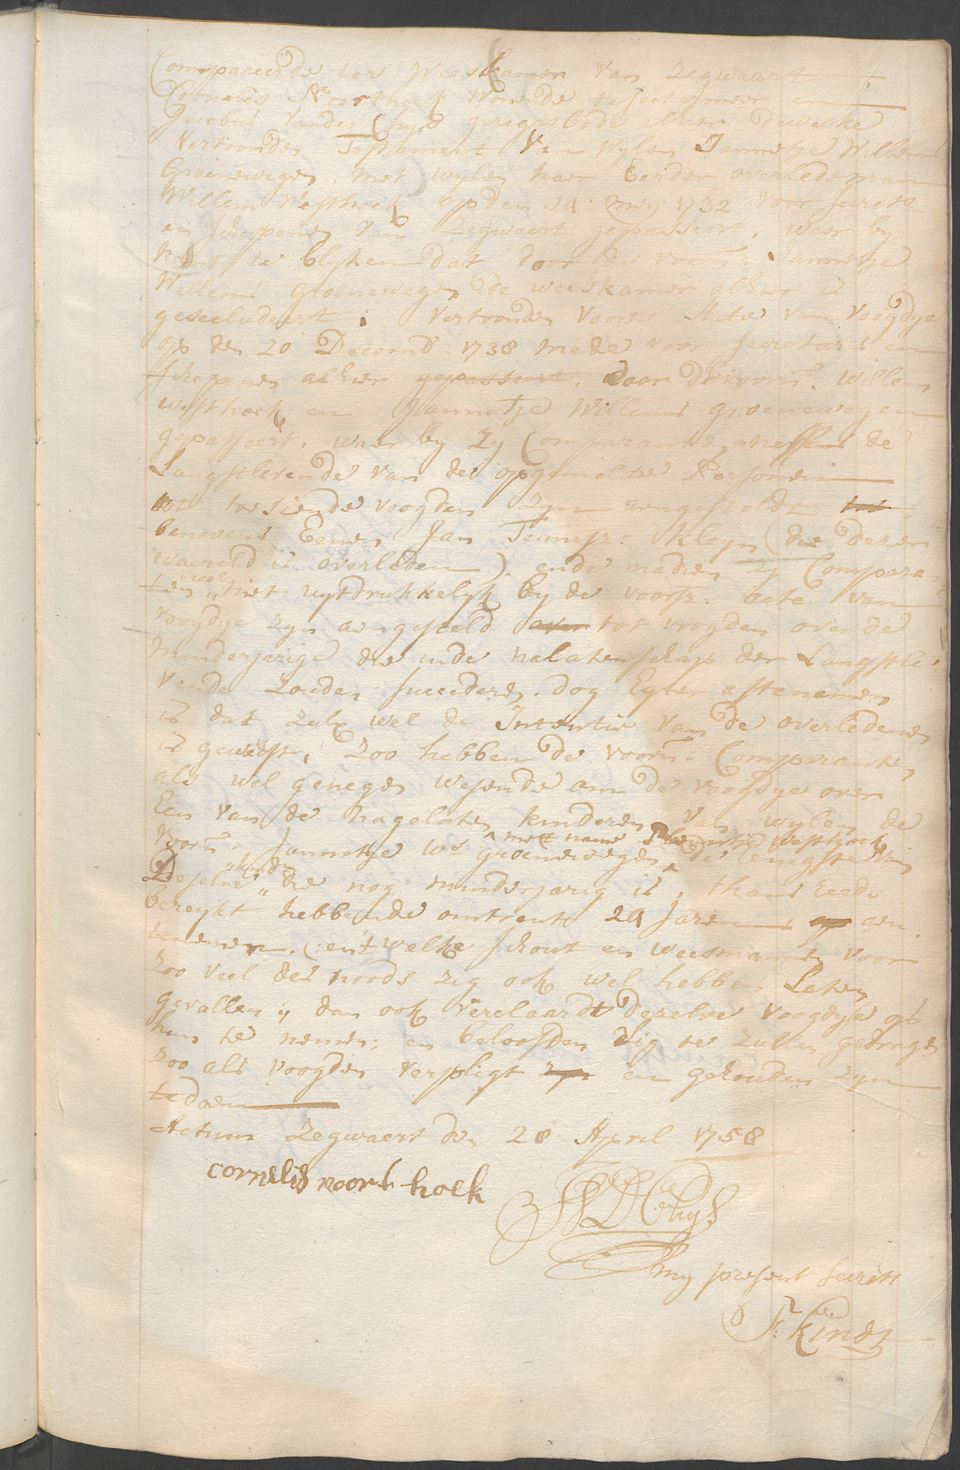 Compareerde ter Weeskamer van Zegwaart
Cornelis Noorthoek wonende te Soetermeer en
Jacobus vander
vertoonden Testament van wylen Jannetje Willems
Groenewegen, met wylen haar Eerder overlede man
Willem Westhoek op den 1732 voor Secrets
en schepenen van Zegwaert gepasseert, waer by
komt te blyken dat door de voorn. Jannetje
Willems Groenewegen de weeskamer alhier is
gesecludeert; vertoonden voorts Acte van voogdye
op den 20 Decemb. 1738 mede voor Secretaris en
schepenen alhier gepasseert, door de voorn. Willem
westhoek en Jannetje Willems groenewegen
gepasseert, waer by Zy Comparanten neffens de
Langstlevende van de opgemelte Personen
tot toesiende voogden Zyn aengestelt tot
benevens Eenen Jan Teunisz. Kleyn (die deser
waereld is overleden) ende nadien Zy Compara-
ten wel niet uytdrukkelyk by de voorsz. acte van
voogdye zyn aengesteld over tot voogden over de
Minderjarige die inde nalatenschap der Langstle-
vende Zouden succederen. dog Egter aftenemen
is dat zulx wel de Intentie van de overledenen
is geweest, Zoo hebben de voorn. Comparanten
als wel genegen wesende om de voogdye over
Een van de nagelaten kinderen van wylen de
voorn. Jannetje Ws Groenewegen, met name Westhoek
de eenigste van
Deselve die nog minderjarig is, thans reeds
bereykt hebbende omtrent 24 Jaren op aen
tenemen. (en 't welke schout en weesmannen voor
Zoo veel des noods zig ook wel hebben Laten
gevallen) dan ook verclaardt deselve voogdye op
hun te nemen, en beloofden Zig te Zullen gedragen
Zoo als voogden verpligt zyn en gehouden Zyn
te doen
Actum Zegwaert den 28 April 1758
cornelis noort hoek
my present Secrets
Kindt